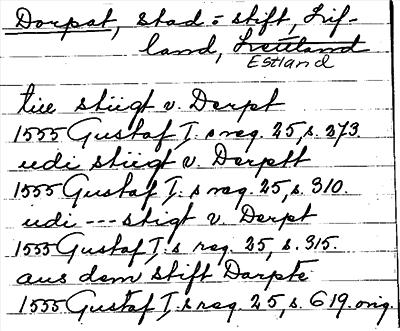 Dorpat, stad o stift, Lif-
land, Lettland
Estland
tüe stiigt v. Derpt
1555 Gustaf I:s reg. 25, s. 273
udi stiigt v. Derptt
1555 Gustaf I:s reg. 25, s. 310.
udi --- stigt v. Derpt
1555 Gustaf I:s reg. 25, s. 315.
aus dem stift Darpte
1555 Gustaf I:s reg. 25, s. 619. orig.